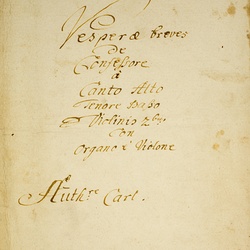 Vesperæ breves
de
Confessore
â
Canto Alto
Tenore Basso
Violinis 2bus
con
Organo è Violone
Auth:re Carl.